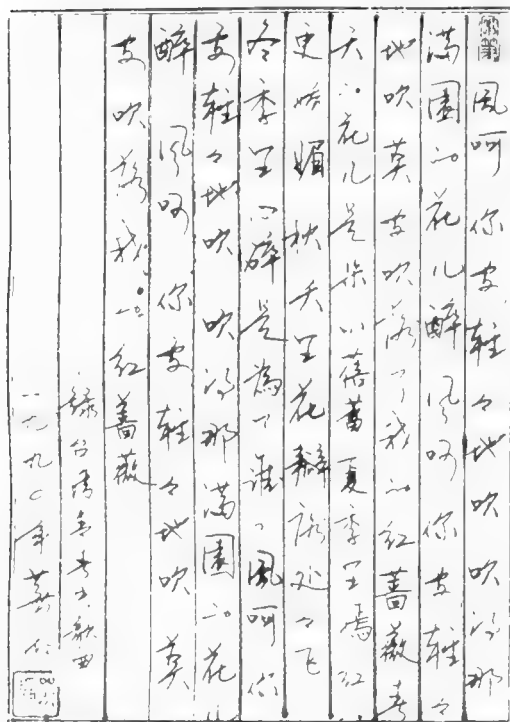 风呵你要轻々地吹吹得那
满園的花儿醉风呵你要轻々
地吹莫要吹落了我的红蔷薇春
天的花儿是朵的蓓蕾夏季里焉红
更娇媚秋天里花瓣流处々飞
冬季里心碎是为了谁风呵你
要轻々地吹吹得那满園的花儿
醉风呵你要轻々地吹莫
要吹落我的红蔷薇
录台湾
一九九〇年